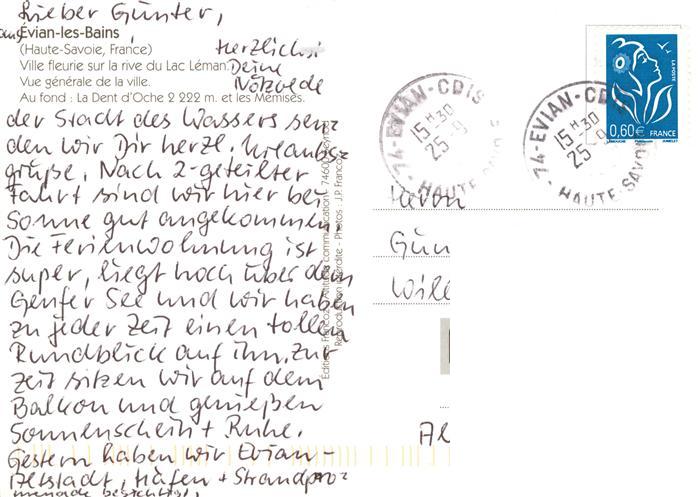 Lieber Günter,
aus
Évian-les-Bains
(Haute-Savoie, France)
Ville fleurie sur la rive du Lac Léman.
Vue générale de la ville.
Au fond : La Dent d'Oche 2 222 m. et les Mémises.
der Stadt des Wassers sen-
den wir Dir herzl. Urlaubs-
grüße. Nach 2-geteilter
Fahrt sind wir hier bei
Sonne gut angekommen.
Die Ferienwohnung ist
super, liegt hoch über dem
Genfer See und wir haben
zu jeder Zeit einen tollen
Rundblick auf ihn. Zur
Zeit sitzen wir auf dem
Balkon und genießen
Sonnenschein + Ruhe.
Gestern haben wir Evian-
Altstadt, Hafen + Strandpro-
menade besichtigt.
Herzlichst
Deine
Editions France
communication
74600
Reproduction interdite - Photos : J.P. France
74-EVIAN-CDIS
15H30
25-9
HAUTE
74-EVIAN-CDIS
15H30
25-9
HAUTE-SAVOIE
LA POSTE
0,60€ FRANCE
Herrn
Gün
Wil
Al